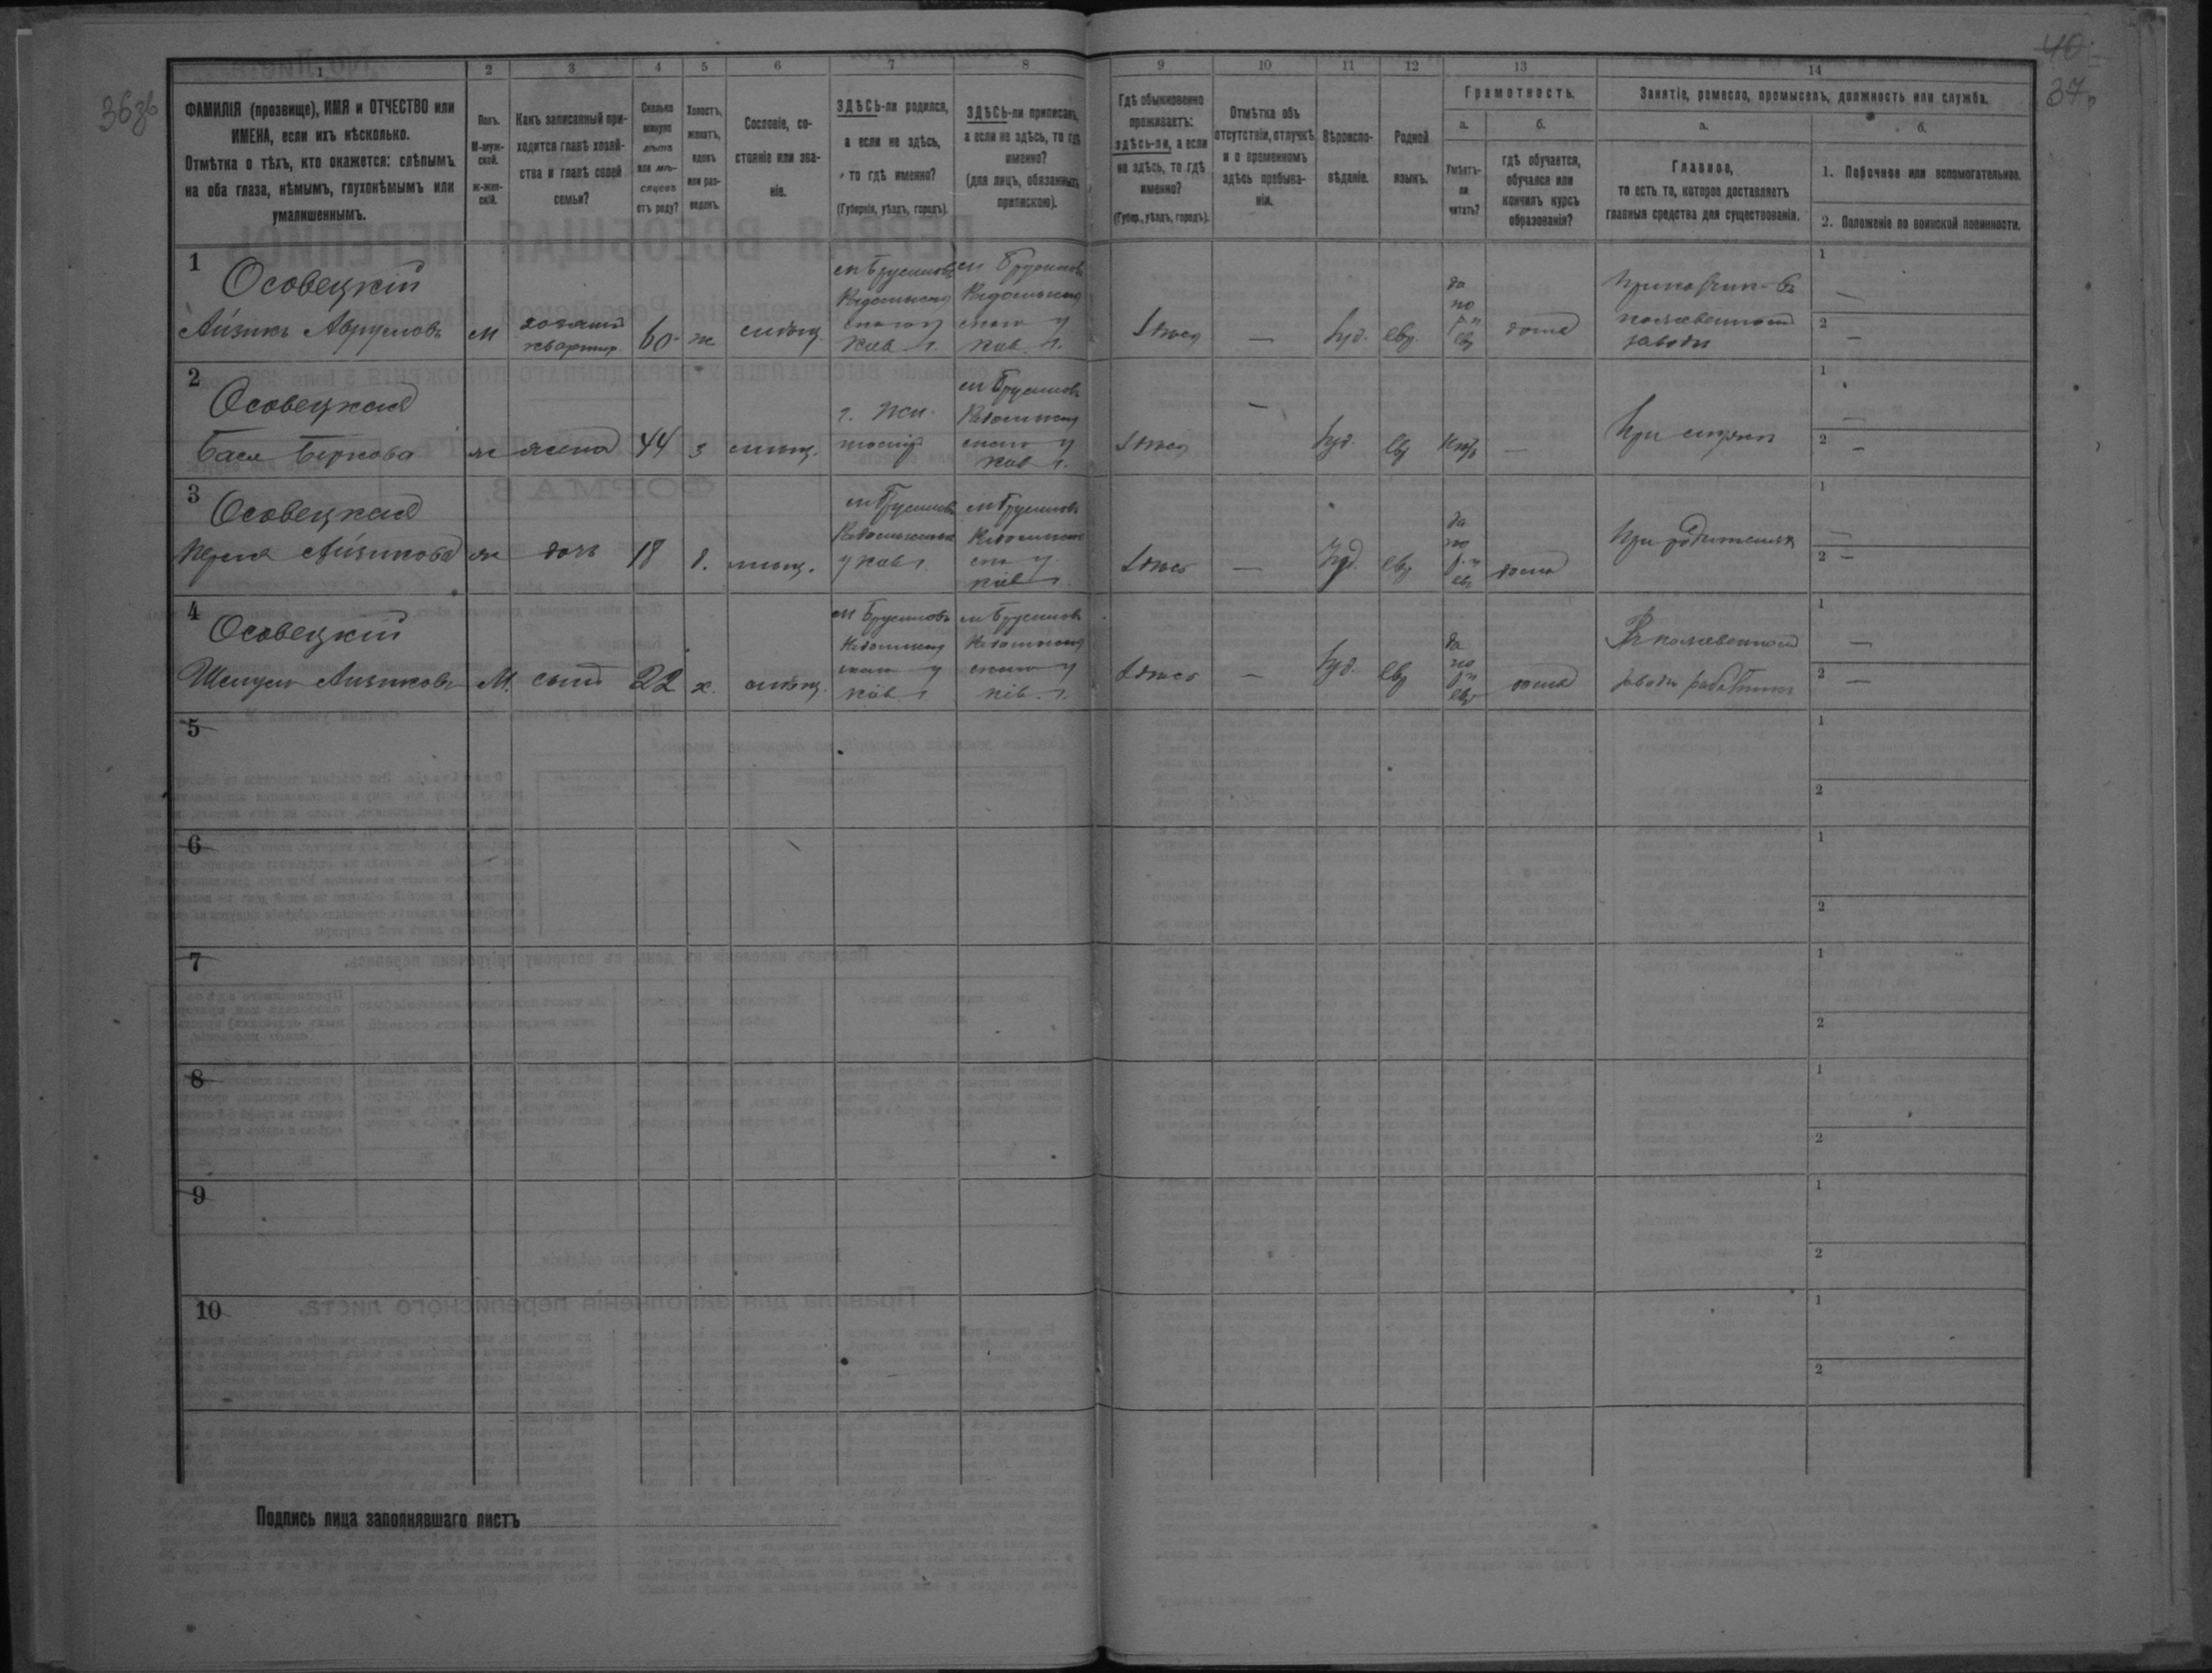 36зв
40
37
1
2
3
4
5
6
7
8
9
10
11
12
13
14
ФАМИЛІЯ (прозвище), ИМЯ и ОТЧЕСТВО или
ИМЕНА, если ихъ нѣсколько.
Отмѣтка о тѣхъ, кто окажется: слѣпымъ
на оба глаза, нѣмымъ, глухонѣмымъ или
умалишеннымъ.
Полъ.
М-муж-
ской.
ж-жен-
скій.
Какъ записанный при-
ходится главѣ хозяй-
ства и главѣ своей
семьи?
Сколько
минуло
лѣтъ
или мѣ-
сяцевъ
отъ роду?
Холостъ,
женатъ,
вдовъ
или раз-
веденъ.
Сословіе, со-
стояніе или зва-
ніе.
ЗДѢСЬ-ли родился,
а если не здѣсь,
то гдѣ именно?
(Губернія, уѣздъ, городъ).
ЗДѢСЬ-ли приписанъ,
а если не здѣсь, то гдѣ
именно?
(для лицъ, обязанныхъ
припискою).
Гдѣ обыкновенно
проживаетъ:
здѣсь-ли, а если
не здѣсь, то гдѣ
именно?
(Губер., уѣздъ, городъ).
Отмѣтка объ
отсутствіи, отлучкѣ
и о временномъ
здѣсь пребыва-
ніи.
Вѣроиспо-
вѣданіе.
Родной
языкъ.
Грамотность.
а.
б.
Умѣетъ-
ли
читать?
гдѣ обучается,
обучался или
кончилъ курсъ
образованія?
Занятіе, ремесло, промыселъ, должность или служба.
а.
б.
Главное,
то есть то, которое доставляетъ
главныя средства для существованія.
1. Побочное или вспомогательное.
2. Положеніе по воинской повинности.
1
Осовецкій
Айзикъ Аврумовъ
м
хозяинъ
квартир.
60
ж
мѣщ.
м Брусиловъ
Радомысль
скаго у
Кіев г.
м Брусиловъ
Радомысль
скаго у
Кіев. г.
здѣсь
—
іуд.
евр.
да
по
евр
дома
Прикащик въ
кожевенномъ
заводѣ
1
—
2
—
2
Осовецкая
Бася Беркова
ж
жена
44
з
мѣщ.
г. Жи-
томіръ
м Брусиловъ
Радомысль
скаго у
Кіев г.
здѣсь
—
іуд.
евр
нѣтъ
—
При мужѣ
1
—
2
—
3
Осовецкая
Айзикова
ж
дочь
18
д.
мѣщ.
м Брусиловъ
Радомысльск
у Кіев г.
м Брусиловъ
Радомысль
ск у
Кіев г.
здѣсь
—
іуд.
евр
да
по
евр
дома
При родителяхъ
1
—
2
—
4
Осовецкій
Айзиковъ
М.
сынъ
22
х.
мѣщ.
м Брусиловъ
Радомысль
скаго у
Кіев. г.
м Брусиловъ
Радомысль
скаго у
Кіев. г.
здѣсь
—
іуд.
евр
да
по
евр
дома
Въ кожевенномъ
заводѣ работникъ
1
—
2
—
5
1
2
6
1
2
7
1
2
8
1
2
9
1
2
10
1
2
Подпись лица заполнявшаго листъ